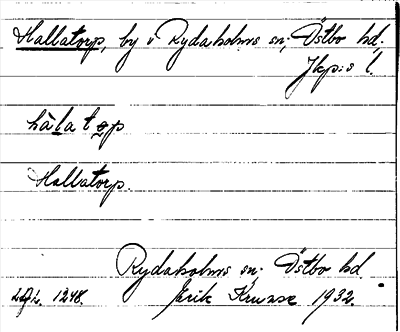 Hallatorp, by i Rydaholms sn; Östbo hd,
Jkp:s l.
hàlatǫp
Hallatorp.
Rydaholms sn; Östbo hd.
1248. Erik Kruuse 1932.